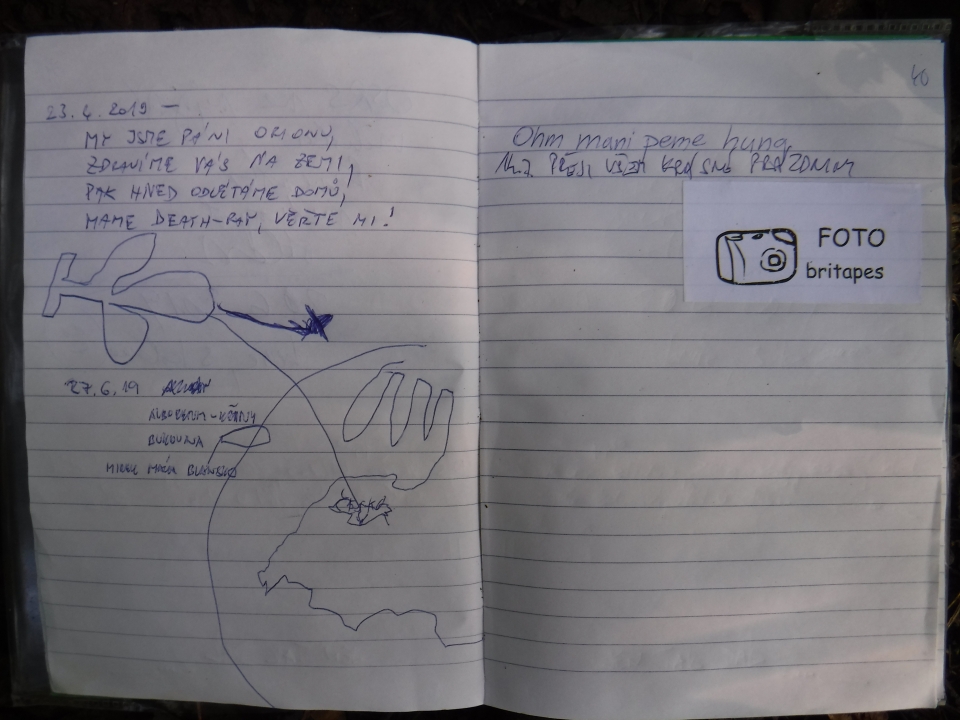 23.4.2019 –
MY JSME PÁNI ORIONU,
ZDRAVÍME VÁS NA ZEMI,
PAK HNED ODLÉTÁME DOMŮ,
MÁME DEATH-RAY, VĚŘTE MI!
27.6.19
BUKOVINA
ČESKO
40
Ohm mani peme hung
PŘEJI VŠEM KRÁSNÉ PRÁZDNINY
FOTO
britapes